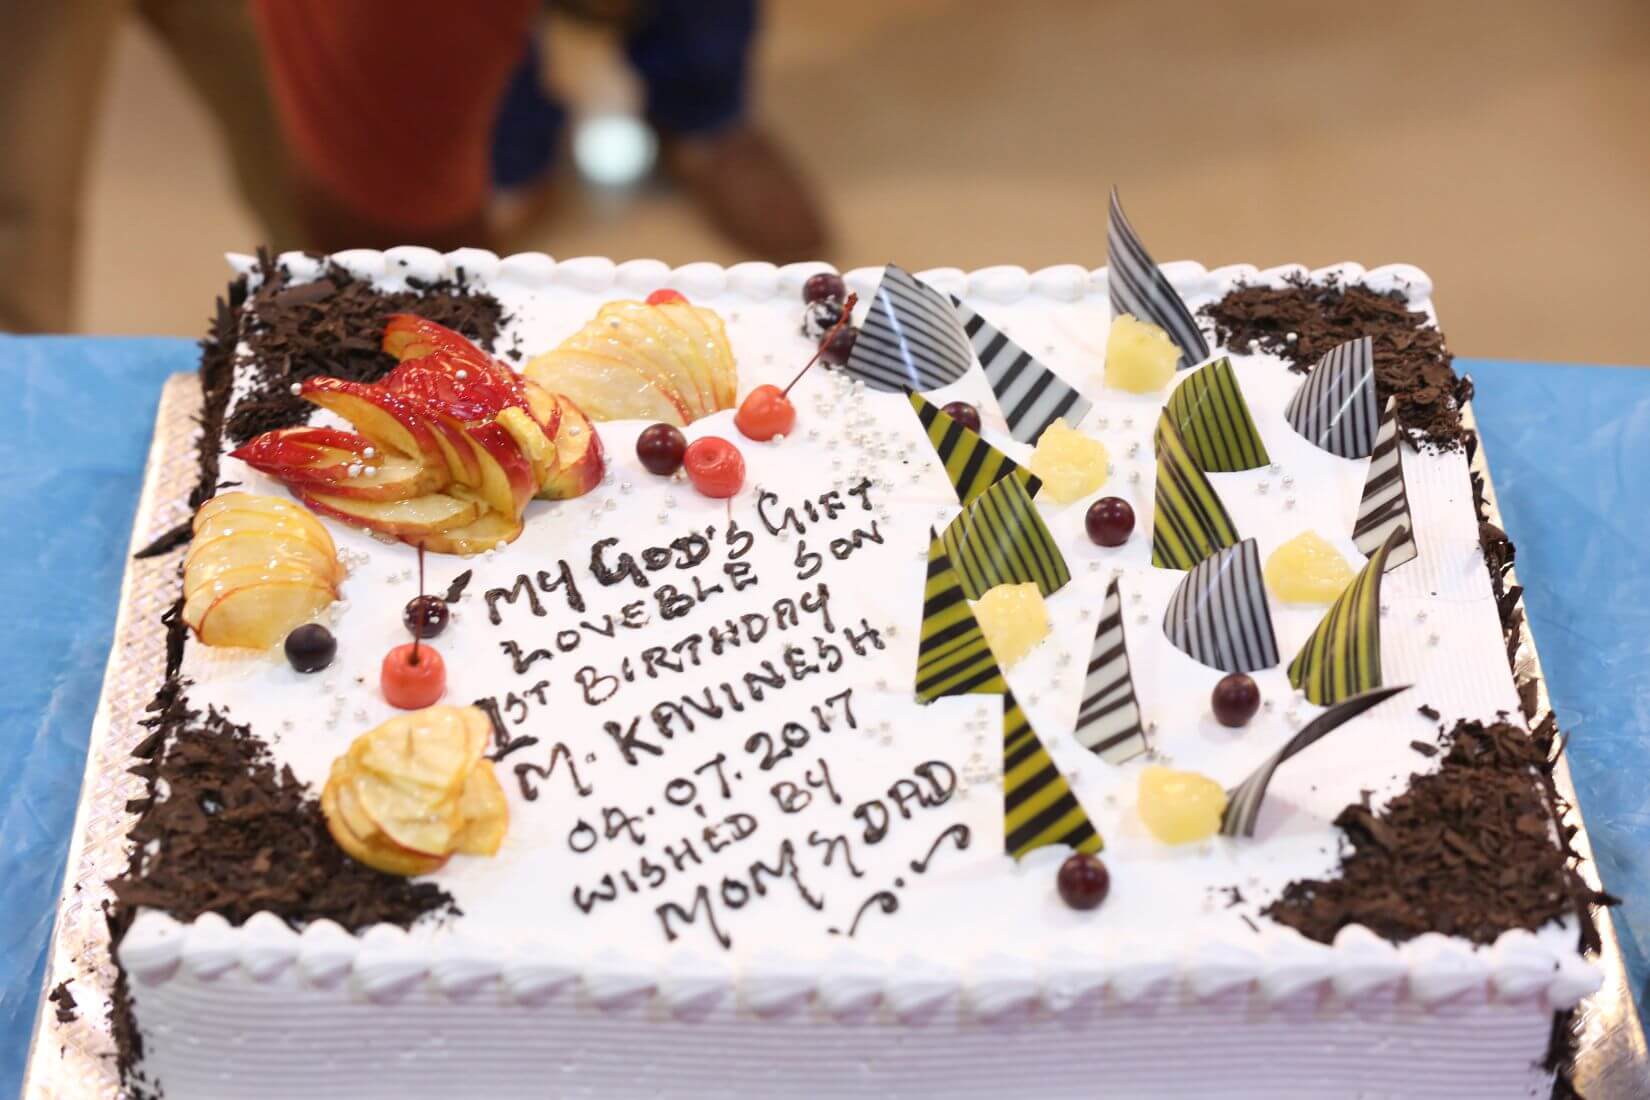 MY GOD'S GIFT
LOVEBLE SON
1ST BIRTHDAY
M. KAVINESH
04.07.2017
WISHED BY
MOM & DAD